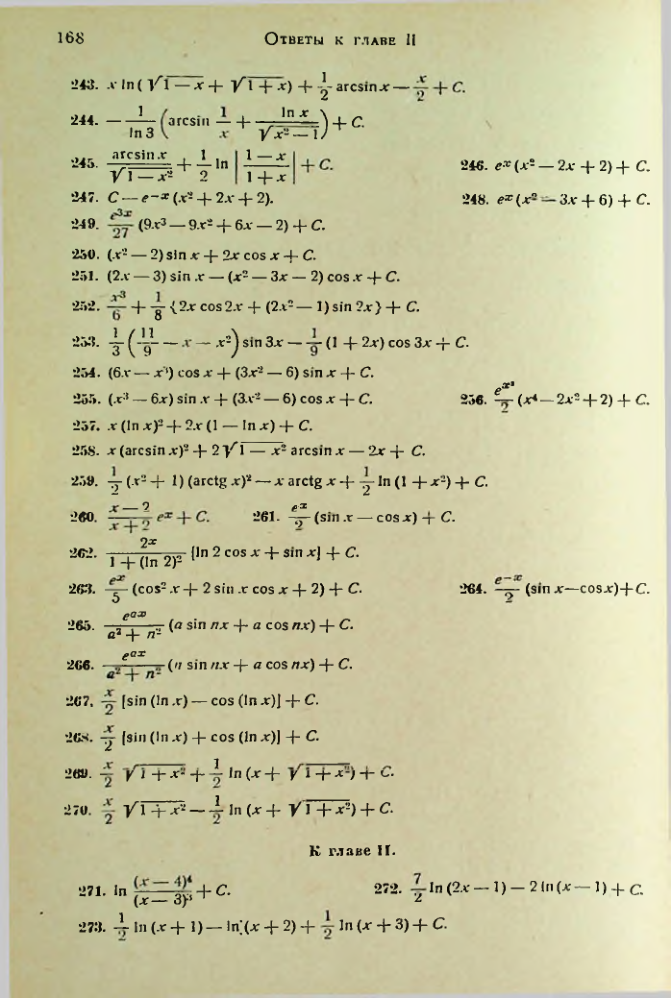 168 Ответы к главе II
243. x ln( √(1 — x) + √(1 + x)) + 1/2 arcsin x — x/2 + C.
244. — 1/ln 3 (arcsin 1/x + ln x/√(x² — 1)) + C.
245. arcsin x/√(1 — x²) + 1/2 ln |(1 — x)/(1 + x)| + C. 246. eˣ (x² — 2x + 2) + C.
247. C — e⁻ˣ (x² + 2x + 2). 248. eˣ (x² — 3x + 6) + C.
249. e³ˣ/27 (9x³ — 9x² + 6x — 2) + C.
250. (x² — 2) sin x + 2x cos x + C.
251. (2x — 3) sin x — (x² — 3x — 2) cos x + C.
252. x³/6 + 1/8 {2x cos 2x + (2x² — 1) sin 2x} + C.
253. 1/3 (11/9 — x — x²) sin 3x — 1/9 (1 + 2x) cos 3x + C.
254. (6x — x³) cos x + (3x² — 6) sin x + C.
255. (x³ — 6x) sin x + (3x² — 6) cos x + C. 256. e^(x²)/2 (x⁴ — 2x² + 2) + C.
257. x (ln x)² + 2x (1 — ln x) + C.
258. x (arcsin x)² + 2 √(1 — x²) arcsin x — 2x + C.
259. 1/2 (x² + 1) (arctg x)² — x arctg x + 1/2 ln (1 + x²) + C.
260. (x — 2)/(x + 2) eˣ + C. 261. eˣ/2 (sin x — cos x) + C.
262. 2ˣ/(1 + (ln 2)²) [ln 2 cos x + sin x] + C.
263. eˣ/5 (cos² x + 2 sin x cos x + 2) + C. 264. e⁻ˣ/2 (sin x—cos x)+C.
265. e^(ax)/(a² + n²) (a sin nx + a cos nx) + C.
266. e^(ax)/(a² + n²) (n sin nx + a cos nx) + C.
267. x/2 [sin (ln x) — cos (ln x)] + C.
268. x/2 [sin (ln x) + cos (ln x)] + C.
269. x/2 √(1 + x²) + 1/2 ln (x + √(1 + x²)) + C.
270. x/2 √(1 + x²) — 1/2 ln (x + √(1 + x²)) + C.
К главе II.
271. ln (x — 4)⁴/(x — 3)³ + C. 272. 7/2 ln (2x — 1) — 2 ln (x — 1) + C.
273. 1/2 ln (x + 1) — ln (x + 2) + 1/2 ln (x + 3) + C.